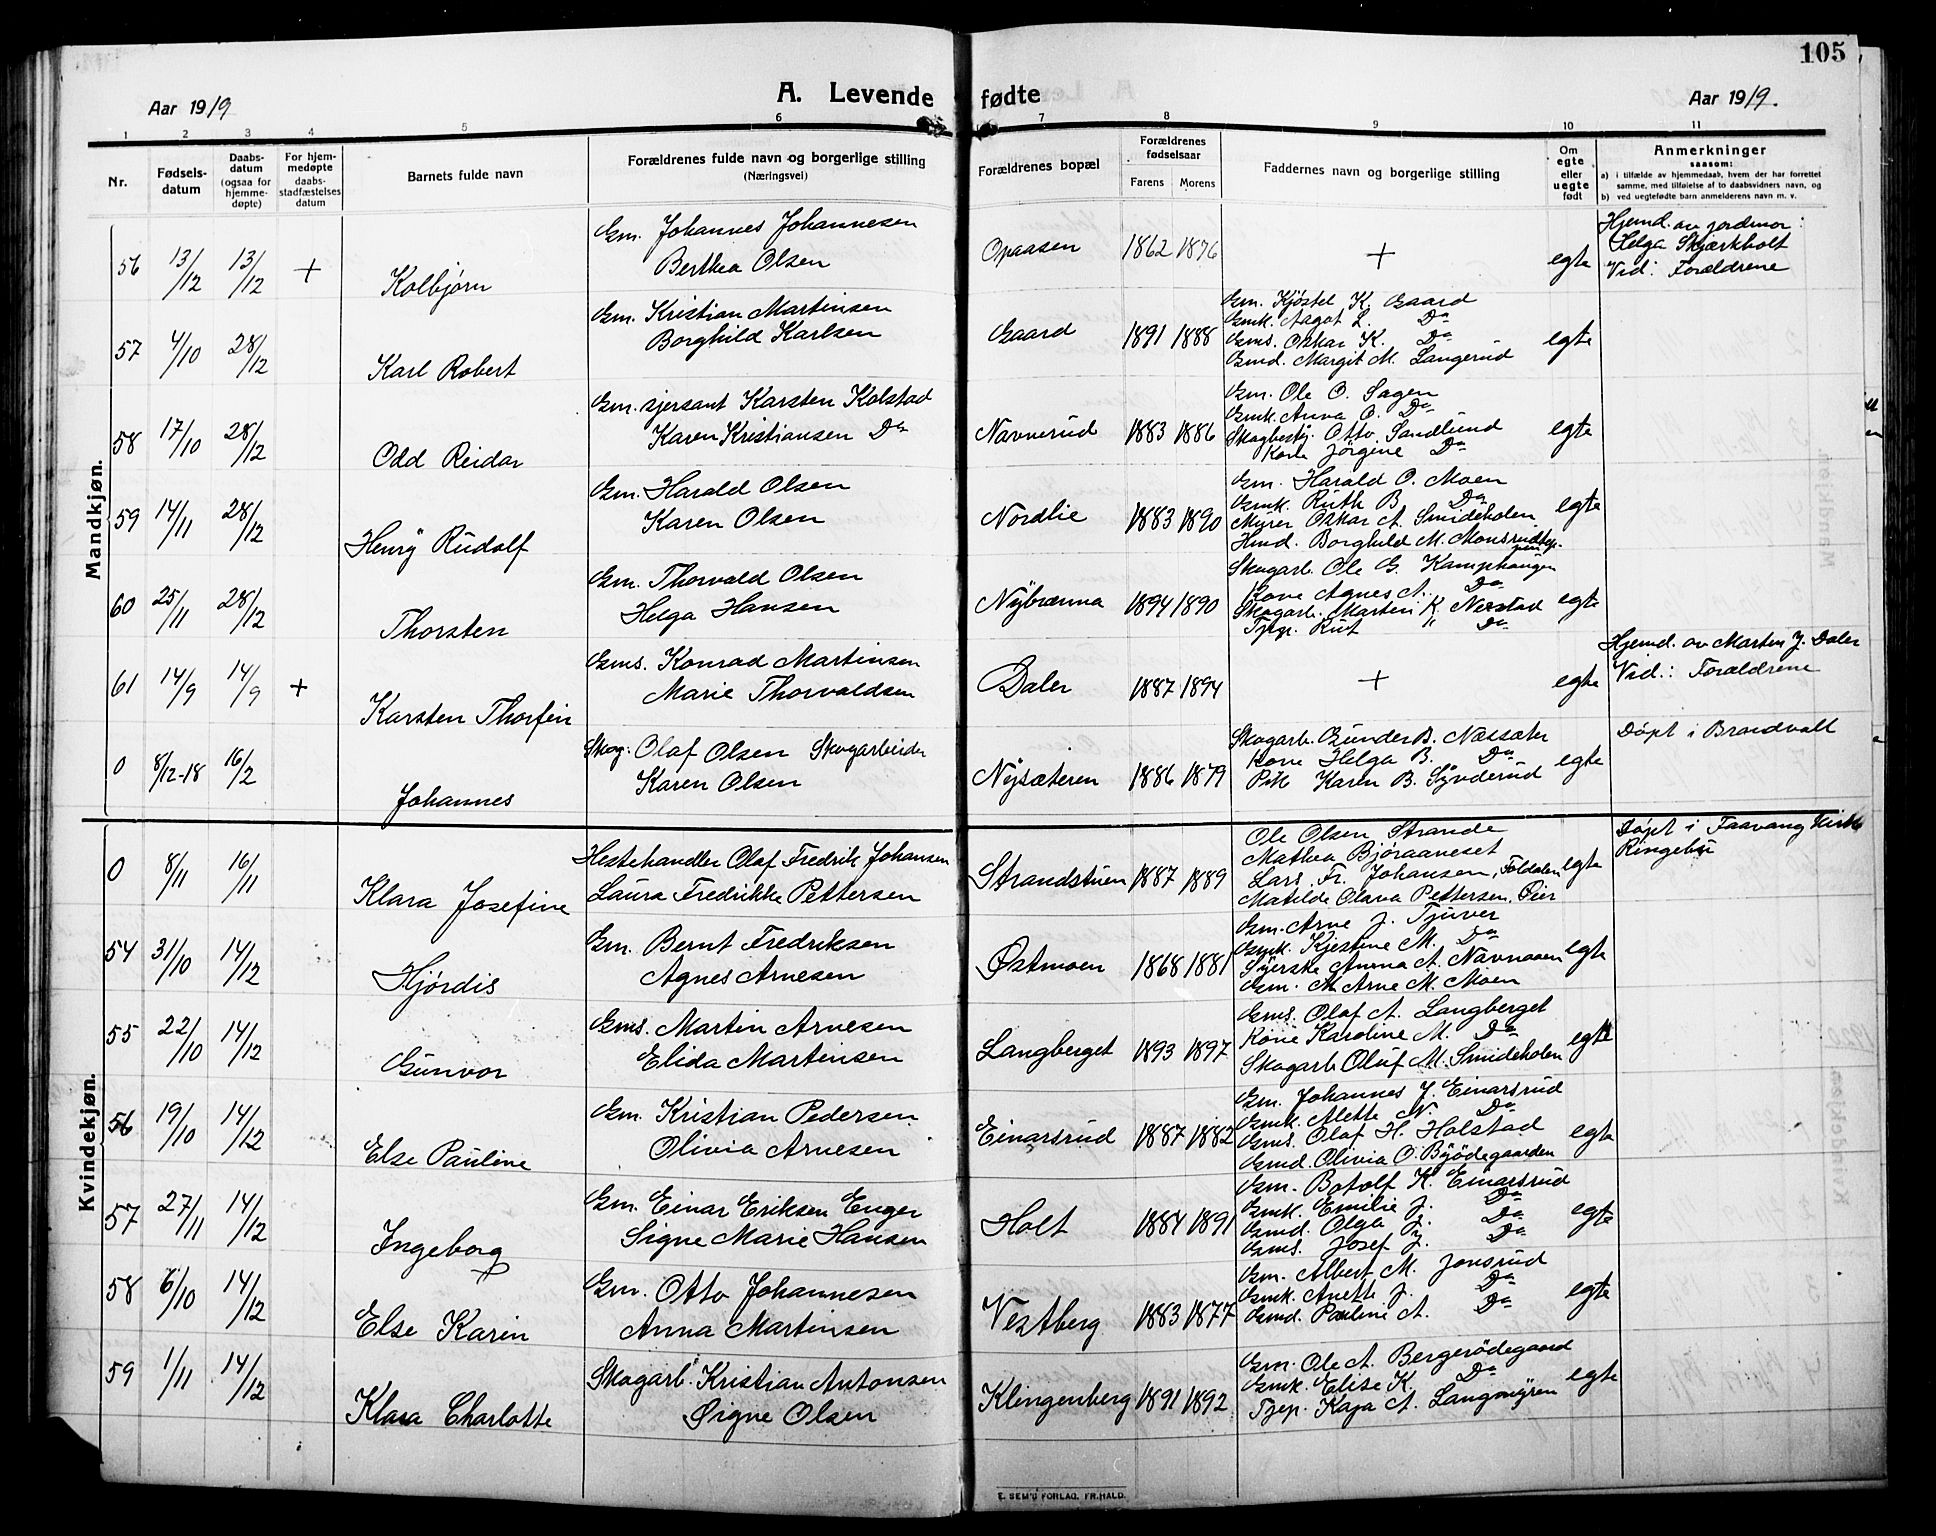 105
A. Levende fødte
Aar 1919
Aar 1919.
1 2 3 4 5 6 7 8 9 10 11
Nr.
Fødsels-
datum
Daabs-
datum
(ogsaa for
hjemme-
døpte)
For hjem-
medøpte
daabs-
stadfæstelses
datum
Barnets fulde navn
Forældrenes fulde navn og borgerlige stilling
(Næringsvei)
Forældrenes bopæl
Forældrenes
fødselsaar
Farens Morens
Faddernes navn og borgerlige stilling
Om
egte
eller
uegte
født
Anmerkninger
saasom:
a) i tilfælde av hjemmedaab, hvem der har forrettet
samme, med tilføielse af to daabsvidners navn, og
b) ved uegtefødte barn anmelderens navn m. v.
Mandkjøn.
56 13/12 13/12 + Kolbjørn
Gm. Johannes Johannesen
Berthea Olsen
Opaasen 1862 1876 + egte
Hjemd. av jordmor:
Helga Skjærkholt
Vid: Forældrene
57 4/10 28/12 Karl Robert
Gm. Kristian Martinsen
Borghild Karlsen
Gaard 1891 1888
Gm. Kjøstel K. Gaard
Gmk. Aagot L. Do
Gms. Oskar K. Do
Gmd. Margit M. Langerud
egte
58 17/10 28/12 Odd Reidar
Gm. sjersant Karsten Kolstad
Karen Kristiansen Do
Navnerud 1883 1886
Gm. Ole O. Sagen
Gmk. Anna O. Do
Skogbesty. Otto Sandlund
Kone Jørgine Do
egte
59 14/11 28/12 Henry Rudolf
Gm. Harald Olsen
Karen Olsen
Nordlie 1883 1890
Gm. Harald O. Moen
Gmk. Ruth B. Do
Myrer Oskar A. Smideholen
Hmd. Borghild M. Monsrud
egte
60 25/11 28/12 Thorsten
Gm. Thorvald Olsen
Helga Hansen
Nybrænna 1894 1890
Skogarb. Ole G. Kamphaugen
Kone Agnes A. Do
Skogarb. Martin K. Nerstad
Tjep. Rut " Do
egte
61 14/9 14/9 + Karsten Thorfin
Gms. Konrad Martinsen
Marie Thorvaldsen
Daler 1887 1894 + egte
Hjemd. av Marten J. Daler
Vid.: Forældrene
0 8/12-18 16/2 Johannes
Skog. Olaf Olsen Skogarbeider
Karen Olsen
Nysæteren 1886 1879
Skogarb. Gunder B. Næssæter
Kone Helga B. Do
Pik Karen B. Synderud
egte
Døpt i Brandvall
Kvindekjøn.
0 8/11 16/11 Klara Josefine
Hestehandler Olaf Fredrik Johansen
Laura Fredrikke Pettersen
Strandstuen 1887 1889
Ole Olsen Strande
Mathea Bjøraaneset
Lars Fr. Johansen, Foldalen
Matilde Olava Pettersen, Øier
egte
Døpt i Faavang Kirke
Ringebu
54 31/10 14/12 Hjørdis
Gm. Bernt Fredriksen
Agnes Arnesen
Østmoen 1868 1881
Gm. Arne J. Tjuver
Gmk. Kjestine M. Do
Syerske Anna A. Navnaaen
Gm. M Arne M. Moen
egte
55 22/10 14/12 Gunvor
Gms. Martin Arnesen
Elida Martinsen
Langberget 1893 1897
Gms. Olaf A. Langberget
Kone Karoline M. Do
Skogarb Oluf M. Smideholen
egte
56 19/10 14/12 Else Pauline
Gm. Kristian Pedersen
Olivia Arnesen
Einarsrud 1887 1882
Gm. Johannes J. Einarsrud
Gmk. Alette N. Do
Gms. Olaf H. Holstad
Gmd. Olivia O. Byødegaarden
egte
57 27/11 14/12 Ingeborg
Gm. Einar Eriksen Enger
Signe Marie Hansen
Holt 1884 1891
Gm. Botolf K. Einarsrud
Gmk. Emilie J. Do
Gmd. Olga J. Do
Gms. Josef J. Do
egte
58 6/10 14/12 Else Karin
Gm. Otto Johannesen
Anna Martinsen
Vestberg 1883 1877
Gm. Albert M. Jonsrud
Gmk. Anette J. Do
Gmd. Pauline A. Do
egte
59 1/11 14/12 Klara Charlotte
Skogarb. Kristian Antonsen
Signe Olsen
Klingenberg 1891 1892
Gm. Ole A. Bergerødegaard
Gmk. Elise K. Do
Tjep. Kaja A. Langmyren
egte
E. SEM'S FORLAG, FR.HALD.